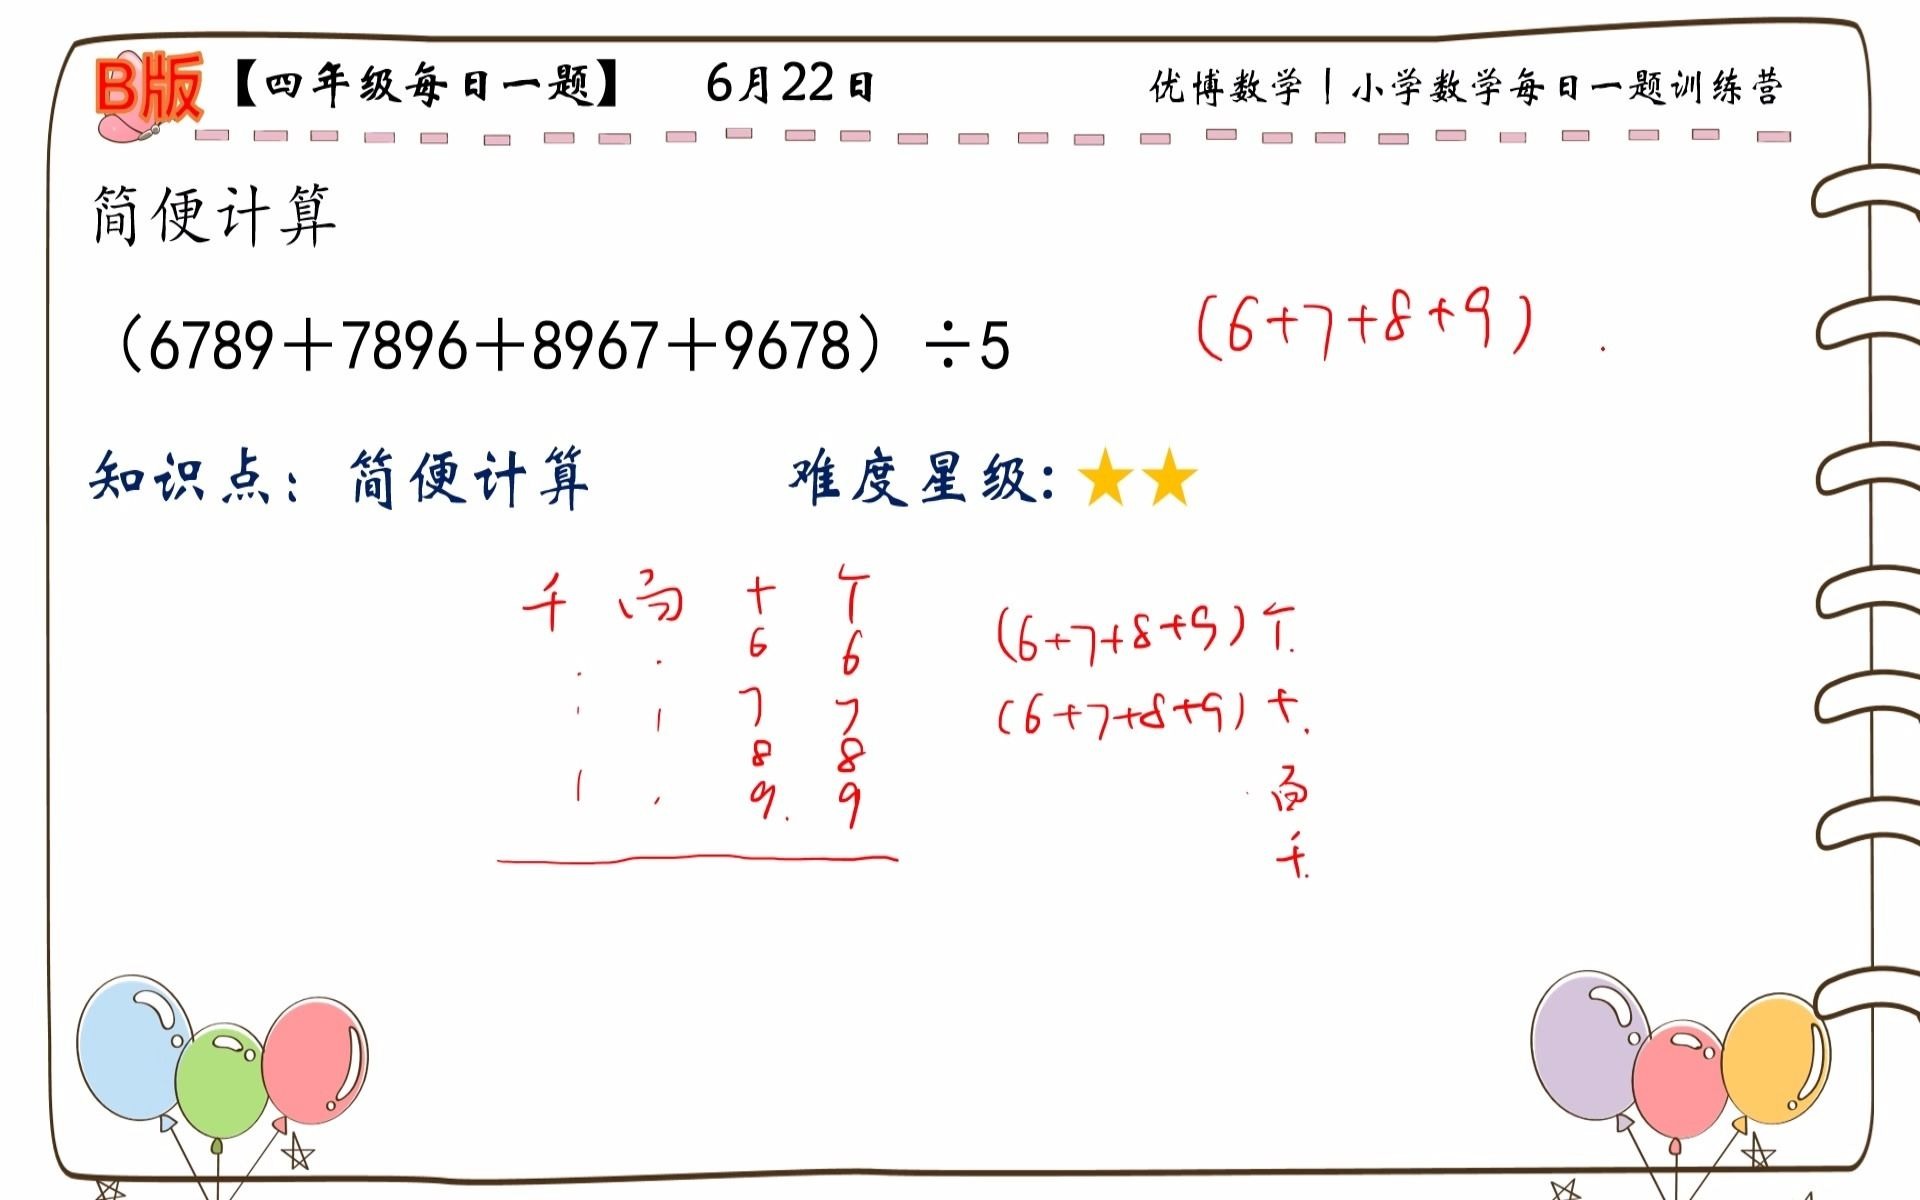 B版【四年级每日一题】 6月22日 优博数学|小学数学每日一题训练营
简便计算
（6789＋7896＋8967＋9678）÷5
(6+7+8+9)
知识点：简便计算 难度星级：★★
千 百 十 个
6 6
7 7
8 8
9 9
(6+7+8+9)个
(6+7+8+9)十
百
千